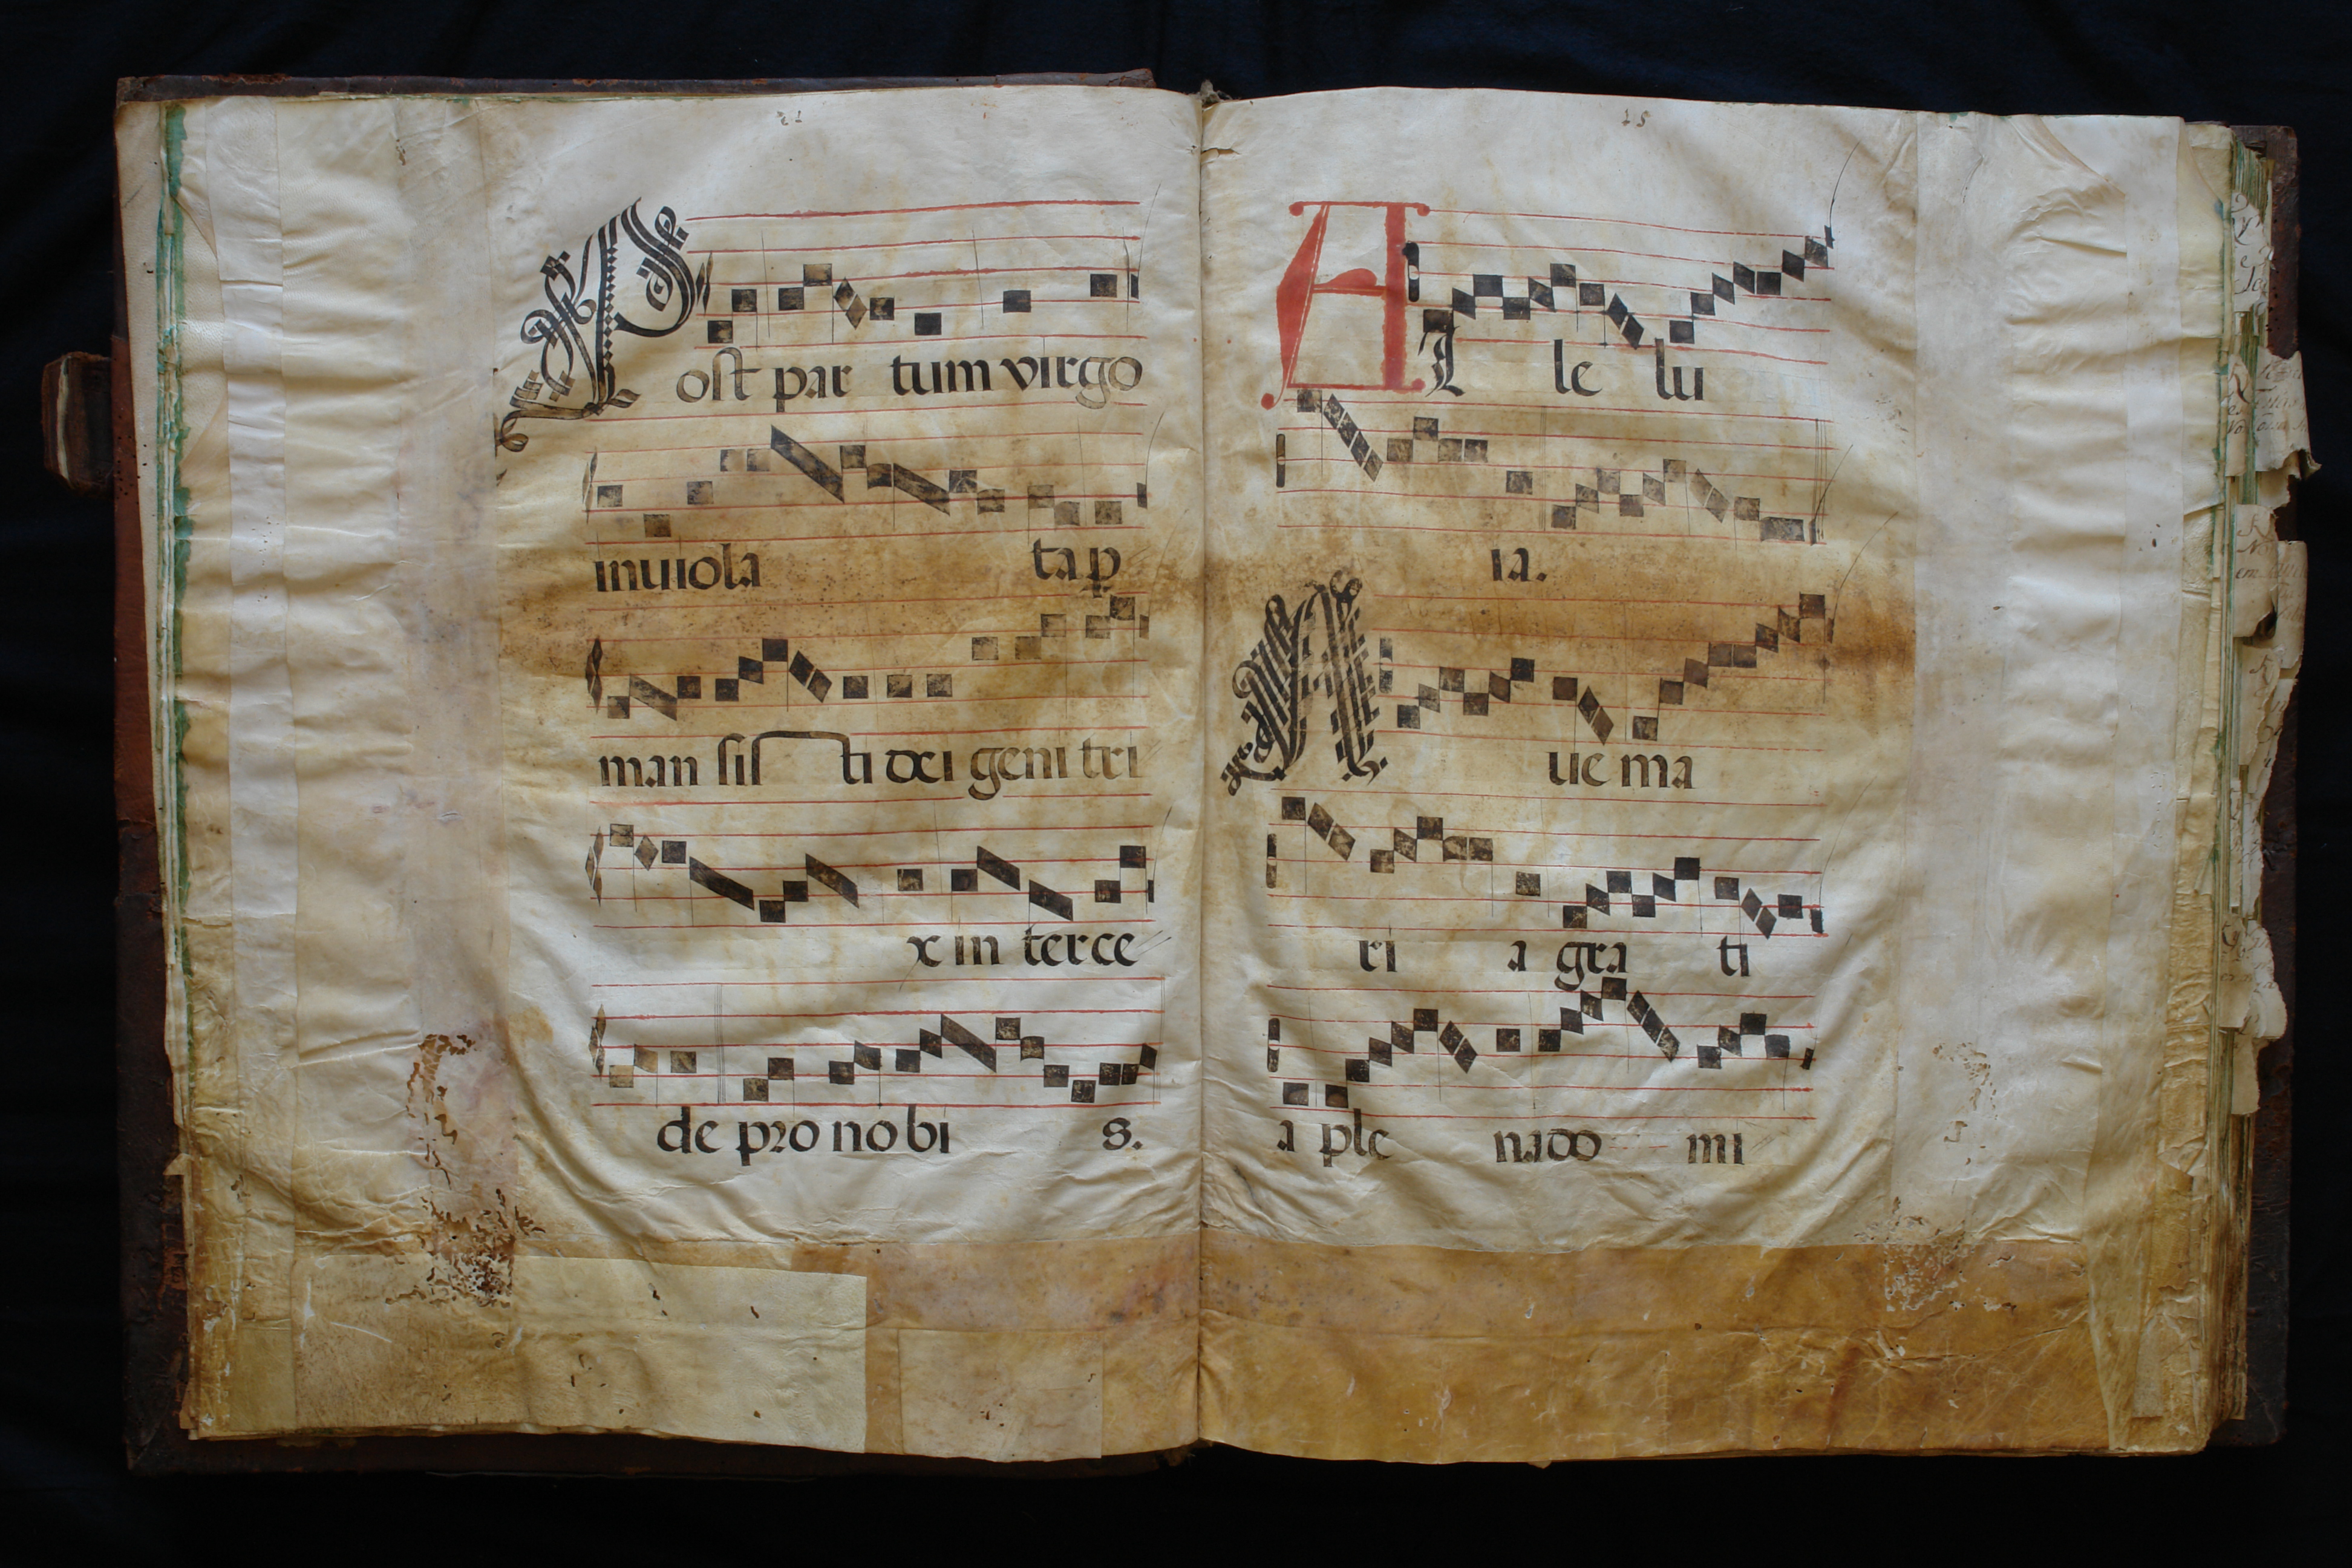 Post par tum virgo
inuiola ta p̲
man sis ti dei geni tri
x in terce
de pro no bi s.
Al le lu
ia.
Aue ma
ri a gra ti
a ple na do mi